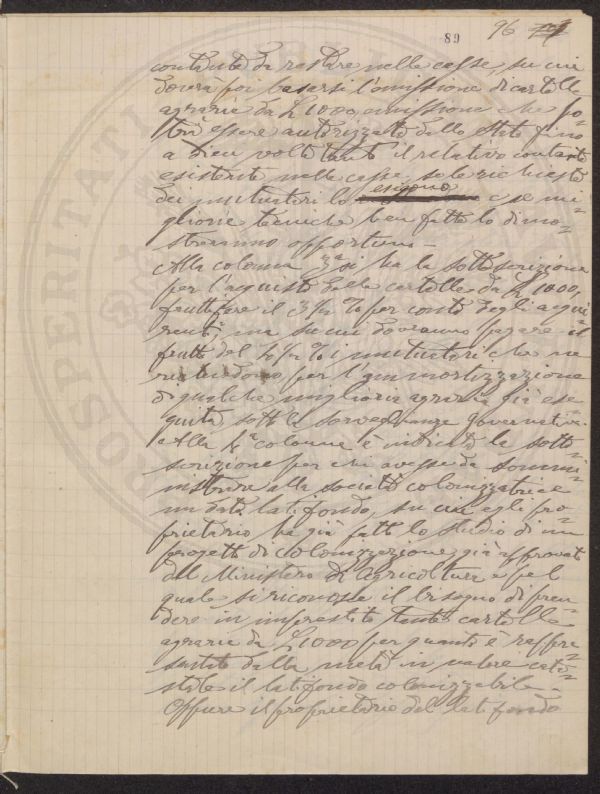 89 96
contante da restare nelle casse, su cui
dovrà poi basarsi l'emissione di cartelle
agrarie da L 1000, emissione che po=
trà essere autorizzata dallo Stato fino
a dieci volte tanto il relativo contante
esistente nelle casse, se le richieste
dei mutuatari lo esigono e se mi=
gliorie tecniche ben fatte lo dimo=
streranno opportuno —
Alla colonna 3ª si ha la sottoscrizione
per l'acquisto delle cartelle da L 1000,
fruttifere il 3½ % per conto degli acqui=
renti, ma su cui dovranno pagare il
frutto del 4½ % i mutuatari che ne
richiedono per l'ammortizzazione
di qualche miglioria agraria già ese=
guita sotto la sorveglianza governativa.
Alla 4ª colonna è indicata la sotto=
scrizione per chi avesse da sommi=
nistrare alla società colonizzatrice
un dato latifondo, su cui egli pro=
prietario ha già fatto lo studio di un
progetto di colonizzazione già approvato
dal Ministero di Agricoltura e pel
quale si riconosce il bisogno di pren=
dere in imprestito tante cartelle
agrarie da L 1000 per quanto è rappre=
sentato dalla metà in valore cata=
stale il latifondo colonizzabile —
Oppure il proprietario del latifondo
PROSPERITATI